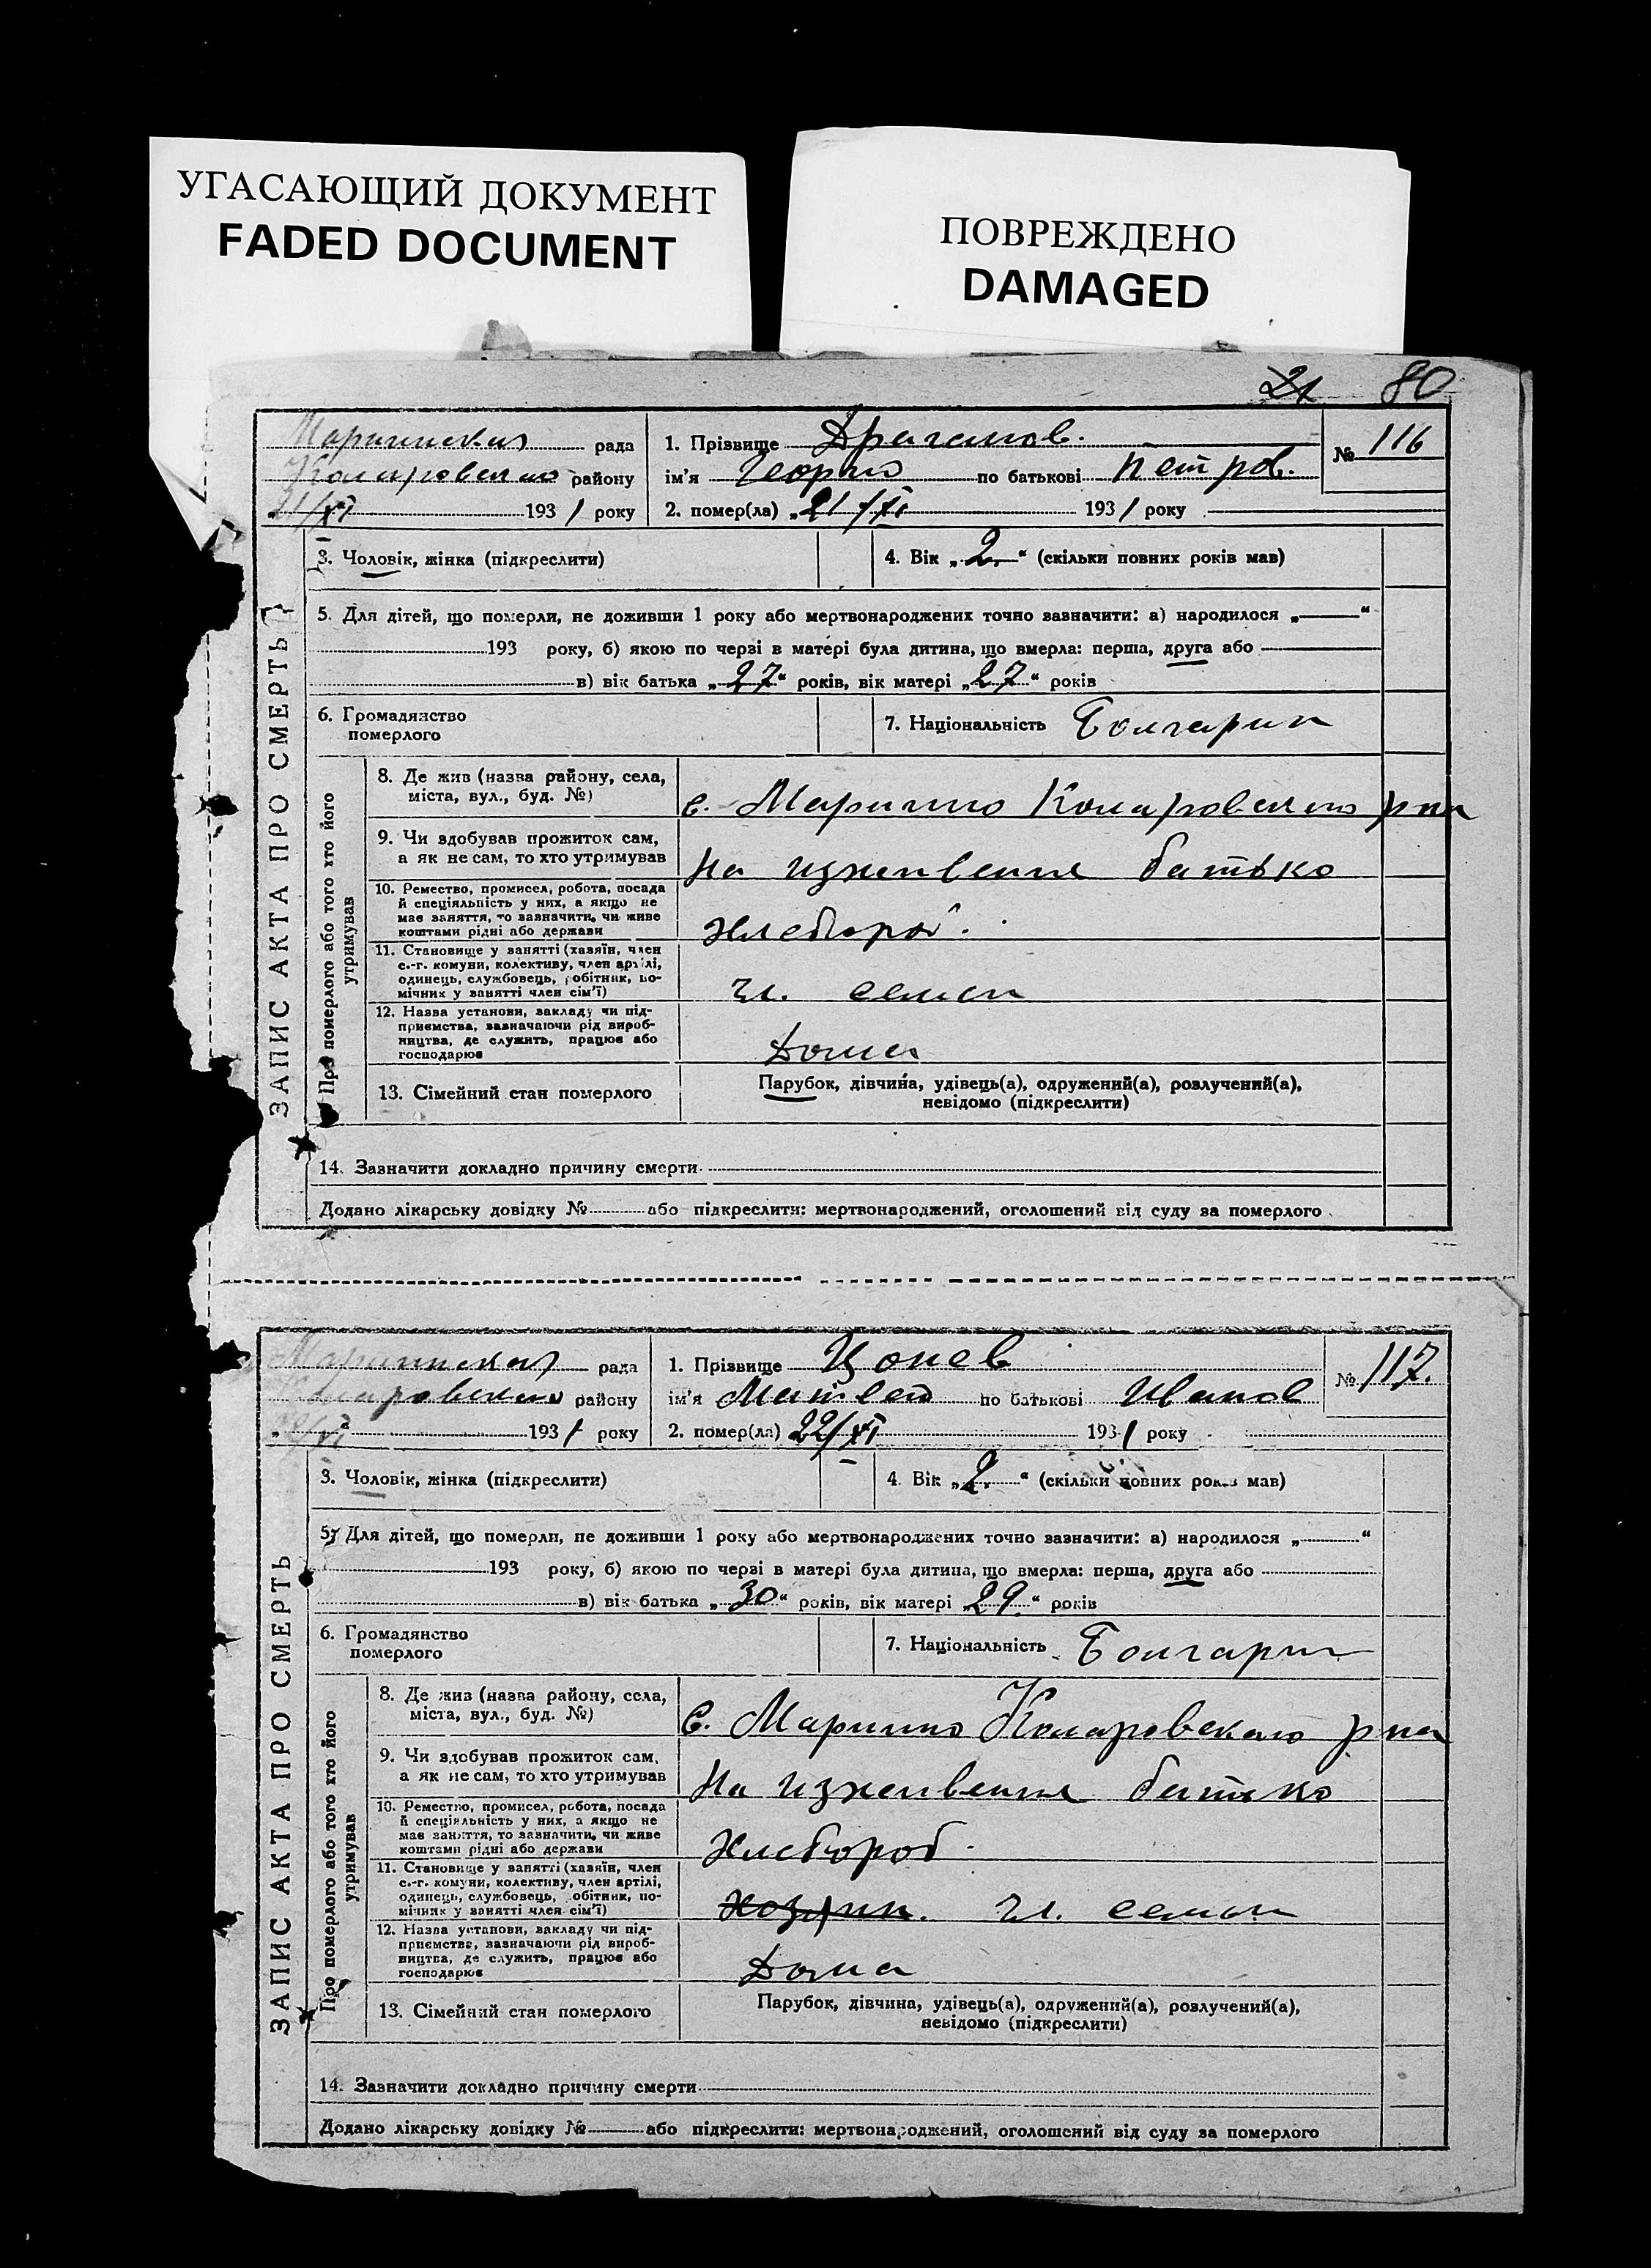 УГАСАЮЩИЙ ДОКУМЕНТ
FADED DOCUMENT
ПОВРЕЖДЕНО
DAMAGED
21 80
Мариинская рада
Коларовского району
21/XI 1931 року
1. Прізвище Драганов.
ім'я Георгий по батькові Петров.
2. помер(ла) „21/XI 1931 року
№ 116
ЗАПИС АКТА ПРО СМЕРТЬ
3. Чоловік, жінка (підкреслити)
4. Вік „2.“ (скільки повних років мав)
5. Для дітей, що померли, не доживши 1 року або мертвонароджених точно зазначити: а) народилося „——“
193 року, б) якою по черзі в матері була дитина, що вмерла: перша, друга або
в) вік батька „27“ років, вік матері „27“ років
6. Громадянство
померлого
7. Національність Болгарин
Про померлого або того хто його
утримував
8. Де жив (назва району, села,
міста, вул., буд. №)
с. Мариино Коларовского рна
9. Чи здобував прожиток сам,
а як не сам, то хто утримував
На изживения батько
10. Ремество, промисел, робота, посада
й спеціяльність у них, а якщо не
має заняття, то зазначити, чи живе
коштами рідні або держави
Хлебороб.
11. Становище у занятті (хазяїн, член
с.-г. комуни, колективу, член артілі,
одинець, службовець, робітник, по-
мічник у занятті член сім'ї)
чл. семьи
12. Назва установи, закладу чи під-
приємства, зазначаючи рід вироб-
ництва, де служить, працює або
господарює
Дома
13. Сімейний стан померлого
Парубок, дівчина, удівець(а), одружений(а), розлучений(а),
невідомо (підкреслити)
14. Зазначити докладно причину смерти
Додано лікарську довідку № або підкреслити: мертвонароджений, оголошений від суду за померлого
Мариинская рада
Коларовского району
22/XI 1931 року
1. Прізвище Цонев
ім'я Матвей по батькові Иванов
2. помер(ла) 22/XI 1931 року
№ 117.
ЗАПИС АКТА ПРО СМЕРТЬ
3. Чоловік, жінка (підкреслити)
4. Вік „2.“ (скільки повних років мав)
5. Для дітей, що померли, не доживши 1 року або мертвонароджених точно зазначити: а) народилося „“
193 року, б) якою по черзі в матері була дитина, що вмерла: перша, друга або
в) вік батька „30“ років, вік матері „29.“ років
6. Громадянство
померлого
7. Національність Болгарин
Про померлого або того хто його
утримував
8. Де жив (назва району, села,
міста, вул., буд. №)
С. Мариино Коларовского рна
9. Чи здобував прожиток сам,
а як не сам, то хто утримував
На изживения батько
10. Ремество, промисел, робота, посада
й спеціяльність у них, а якщо не
має заняття, то зазначити, чи живе
коштами рідні або держави
Хлебороб.
11. Становище у занятті (хазяїн, член
с.-г. комуни, колективу, член артілі,
одинець, службовець, робітник, по-
мічник у занятті член сім'ї)
Хозяин. чл. семьи
12. Назва установи, закладу чи під-
приємства, зазначаючи рід вироб-
ництва, де служить, працює або
господарює
Дома
13. Сімейний стан померлого
Парубок, дівчина, удівець(а), одружений(а), розлучений(а),
невідомо (підкреслити)
14. Зазначити докладно причину смерти
Додано лікарську довідку № або підкреслити: мертвонароджений, оголошений від суду за померлого